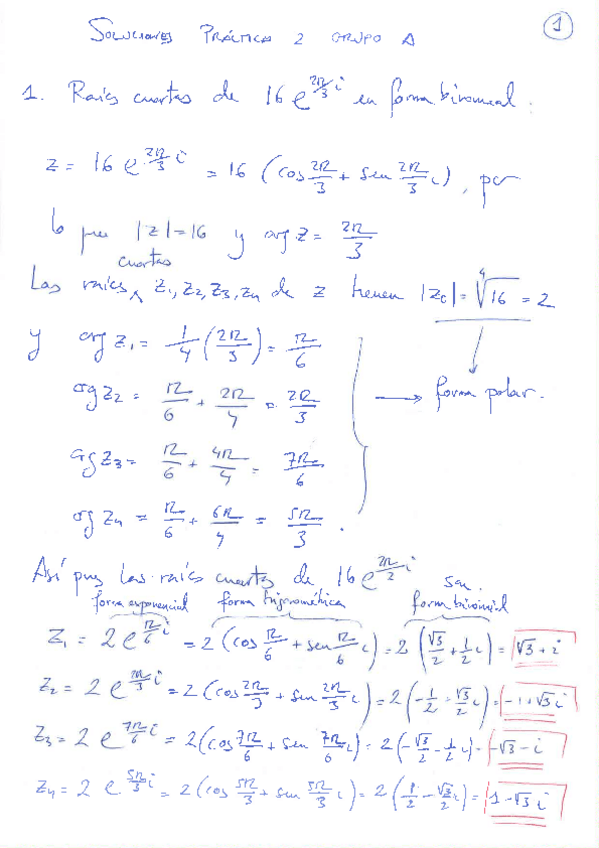 SOLUCIONES PRÁCTICA 2 GRUPO A
1
1. Raíces cuartas de 16 e^{2π/3 i} en forma binomial.
z = 16 e^{2π/3 i} = 16 (cos 2π/3 + sen 2π/3 i), por
lo que |z| = 16 y arg z = 2π/3
Las raíces cuartas z₁, z₂, z₃, z₄ de z tienen |z_c| = ⁴√16 = 2
y arg z₁ = 1/4 (2π/3) = π/6
arg z₂ = π/6 + 2π/4 = 2π/3 → forma polar.
arg z₃ = π/6 + 4π/4 = 7π/6
arg z₄ = π/6 + 6π/4 = 5π/3.
Así pues las raíces cuartas de 16 e^{2π/2 i} son.
forma exponencial forma trigonométrica forma binomial
z₁ = 2 e^{π/6 i} = 2 (cos π/6 + sen π/6 i) = 2 (√3/2 + 1/2 i) = √3 + i
z₂ = 2 e^{2π/3 i} = 2 (cos 2π/3 + sen 2π/3 i) = 2 (-1/2 + √3/2 i) = -1 + √3 i
z₃ = 2 e^{7π/6 i} = 2 (cos 7π/6 + sen 7π/6 i) = 2 (-√3/2 - 1/2 i) = -√3 - i
z₄ = 2 e^{5π/3 i} = 2 (cos 5π/3 + sen 5π/3 i) = 2 (1/2 - √3/2 i) = 1 - √3 i